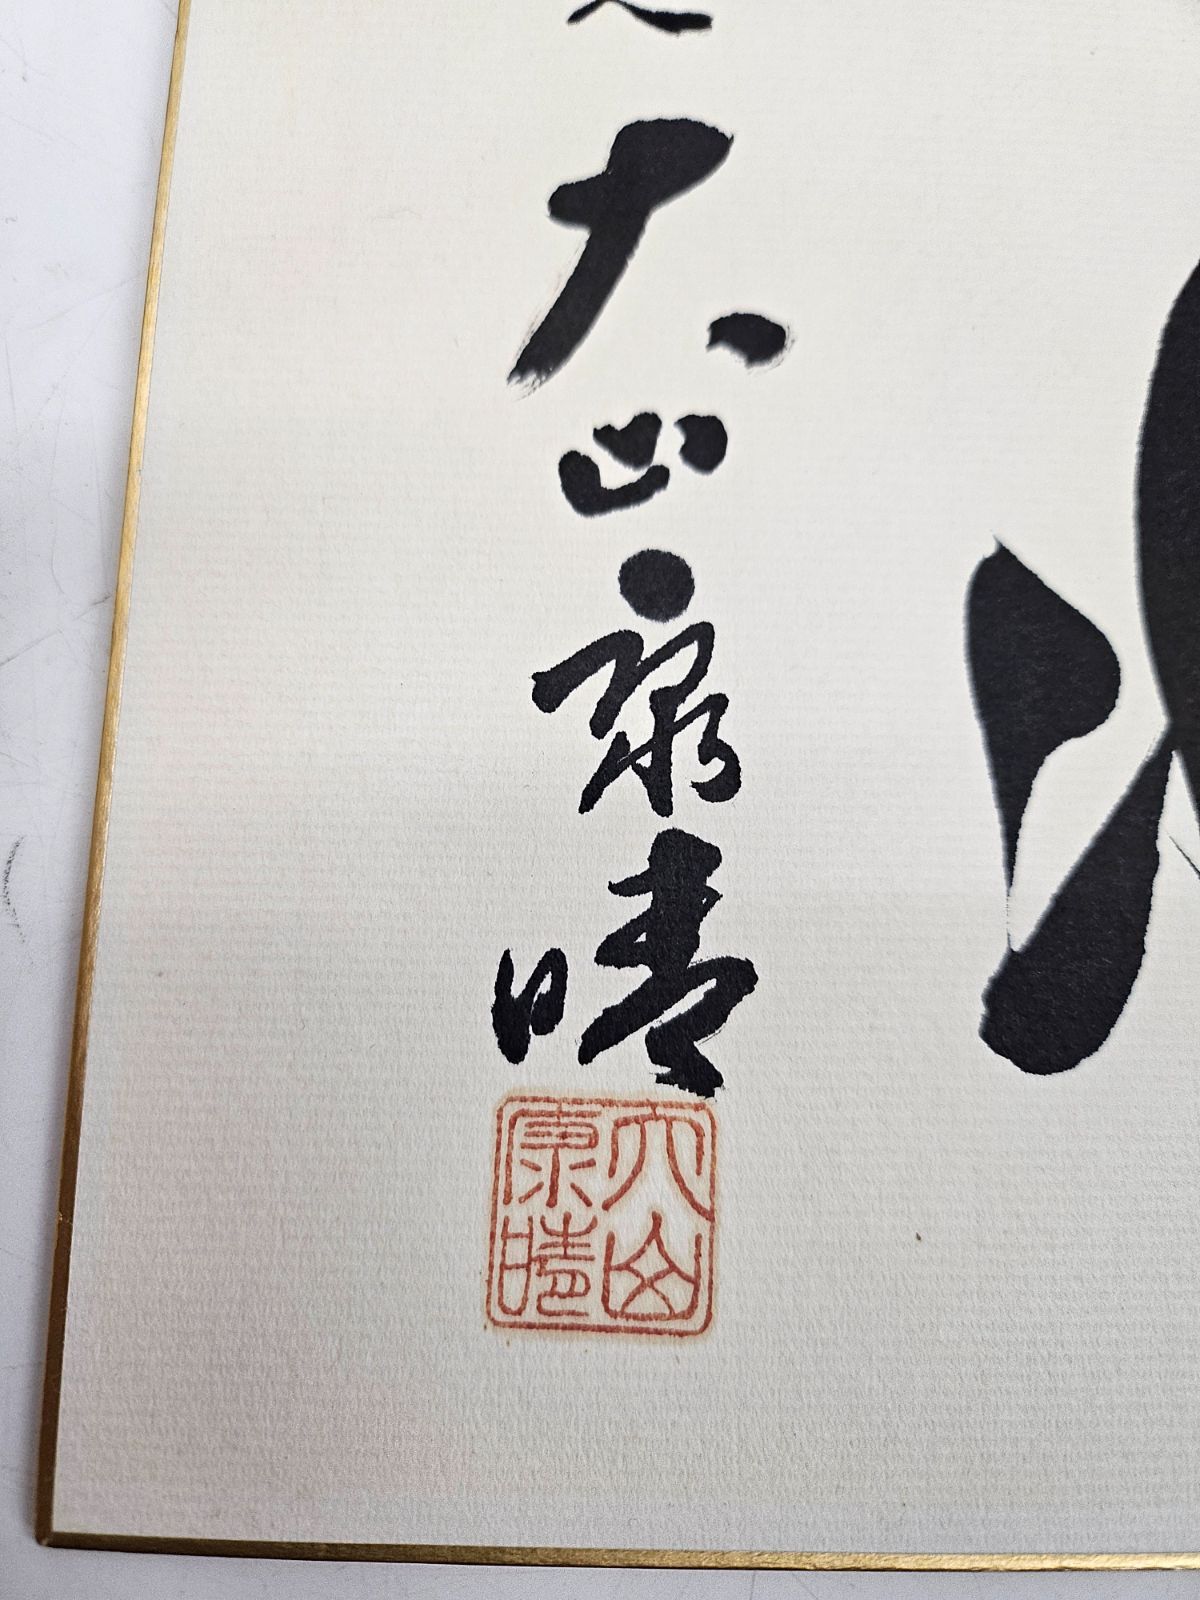 大山康晴
大山
康晴